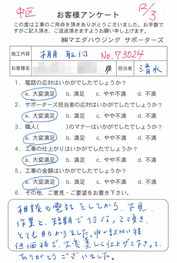 中区
12/3
お客様アンケート
この度は工事のご用命を頂きありがとうございました。お手数で
すがご記入頂き、ご返送頂きますようお願い申し上げます。
㈱マエダハウジング サポーターズ
施工内容
棚 取付
No.73024
お客様名
様
担当者
清水
1．電話の応対はいかがでしたでしょうか？
a. 大変満足 b. 満足 c. やや不満 d. 不満
2．サポーターズ担当者の応対はいかがでしたでしょうか？
a. 大変満足 b. 満足 c. やや不満 d. 不満
3．職人( )のマナーはいかがでしたでしょうか？
a. 大変満足 b. 満足 c. やや不満 d. 不満
4．工事の仕上がりはいかがでしたでしょうか？
a. 大変満足 b. 満足 c. やや不満 d. 不満
5．工事の金額はいかがでしたでしょうか？
a. 大変満足 b. 満足 c. やや不満 d. 不満
6．その他、ご意見・ご要望をお書き下さい。
相談の電話をしてから、下見
作業と、短期で行なって頂き、
とても助かりました。
価格で、大変美しく仕上げて下さって、
ありがとうございました。